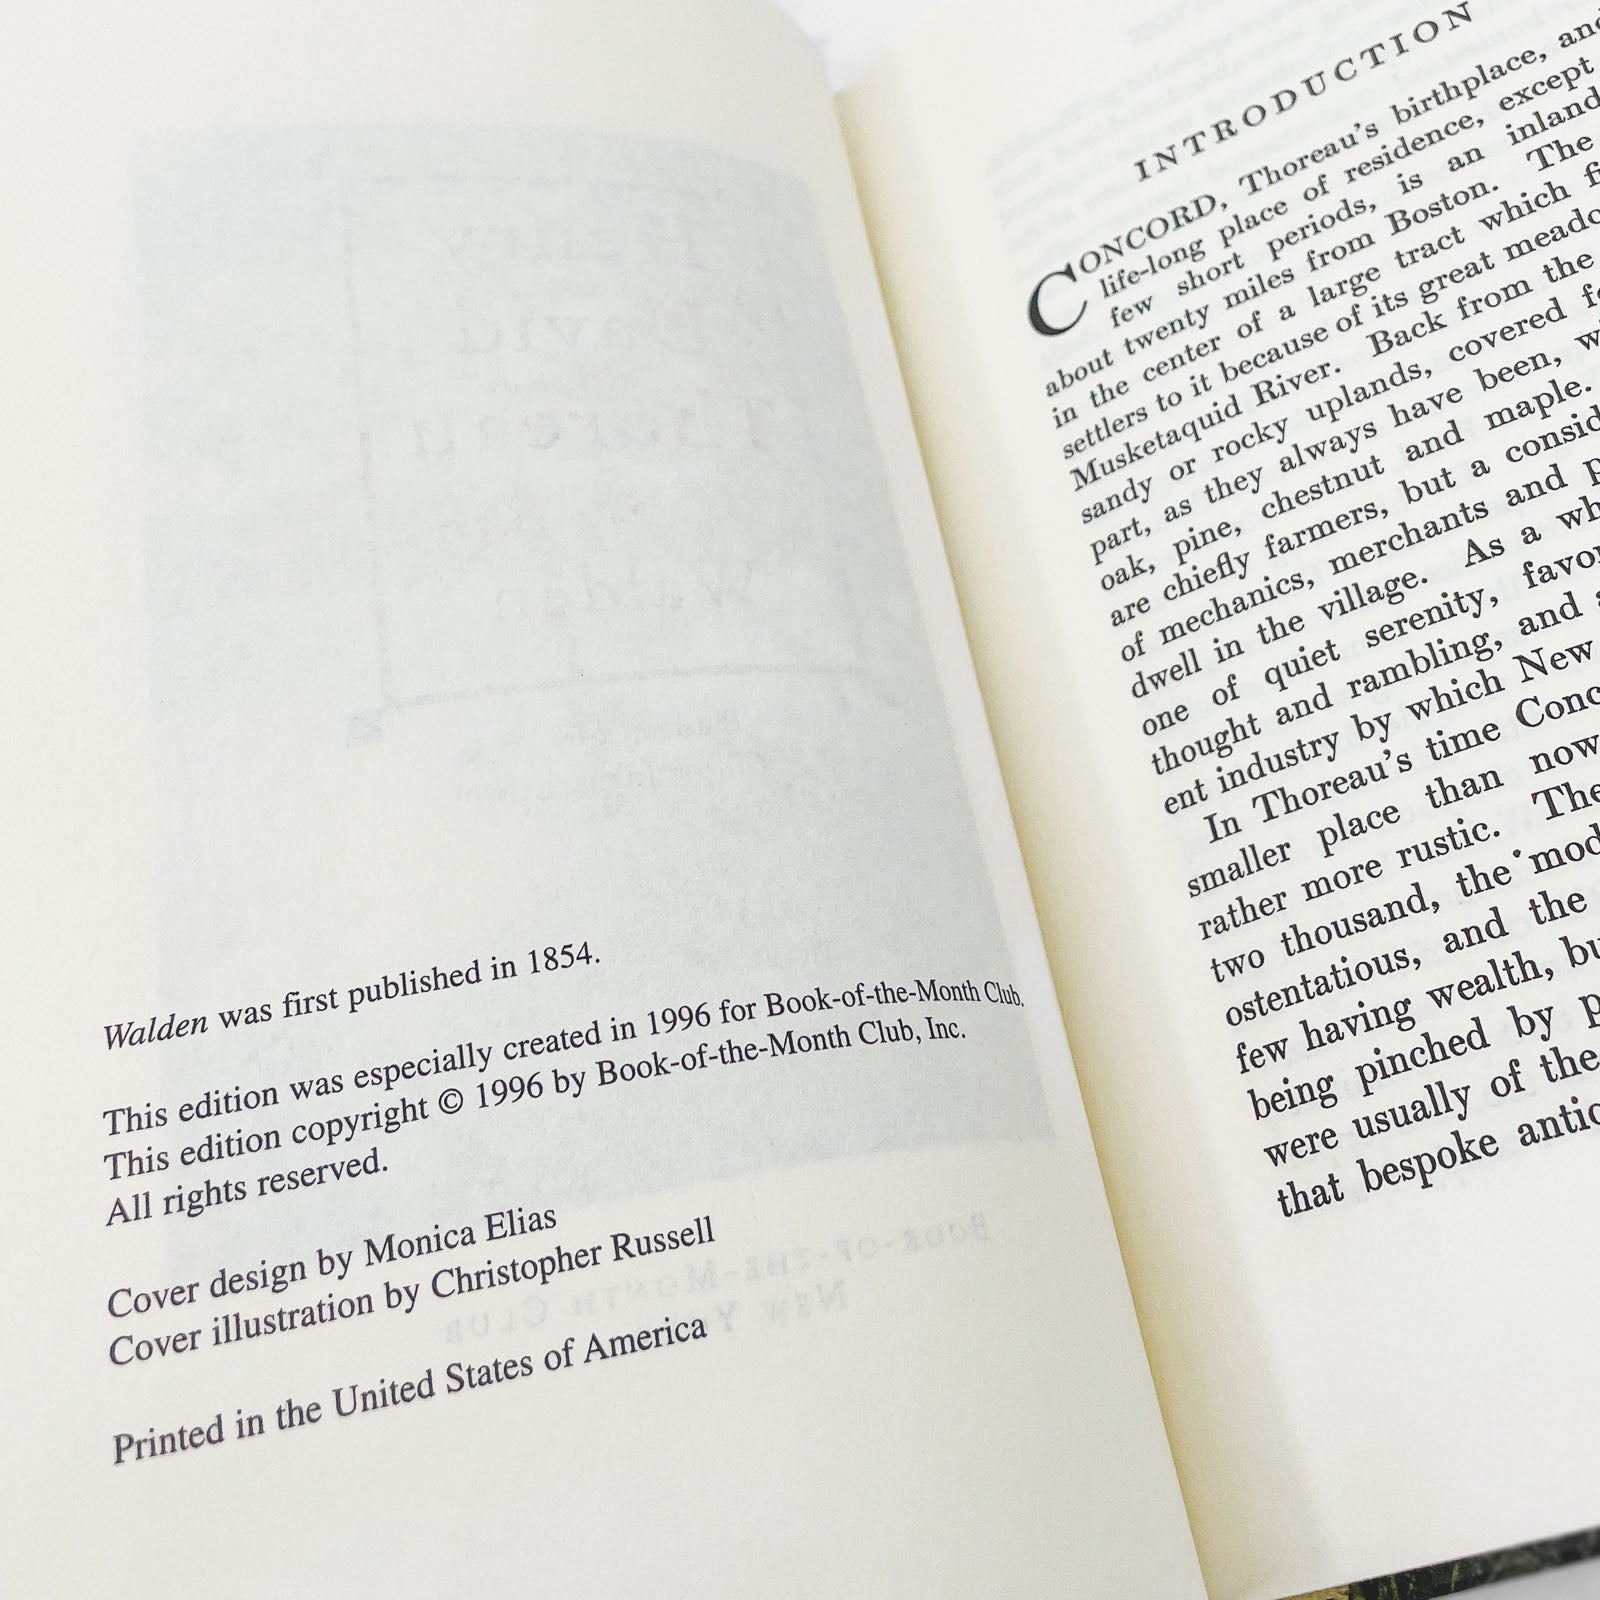 Walden was first published in 1854.
This edition was especially created in 1996 for Book-of-the-Month Club.
This edition copyright © 1996 by Book-of-the-Month Club, Inc.
All rights reserved.
Cover design by Monica Elias
Cover illustration by Christopher Russell
Printed in the United States of America
INTRODUCTION
CONCORD, Thoreau's birthplace, and
life-long place of residence, except
few short periods, is an inland
about twenty miles from Boston. The
in the center of a large tract which
settlers to it because of its great
Musketaquid River. Back from the
sandy or rocky uplands, covered
part, as they always have been,
oak, pine, chestnut and maple.
are chiefly farmers, but a
of mechanics, merchants and
dwell in the village. As a
one of quiet serenity,
thought and rambling, and
ent industry by which New
In Thoreau's time
smaller place than now
rather more rustic.
two thousand, the
ostentatious, and the
few having wealth,
being pinched by
were usually of the
that bespoke
Henry
David
Thoreau
Walden
BOOK-OF-THE-MONTH CLUB
NEW YORK